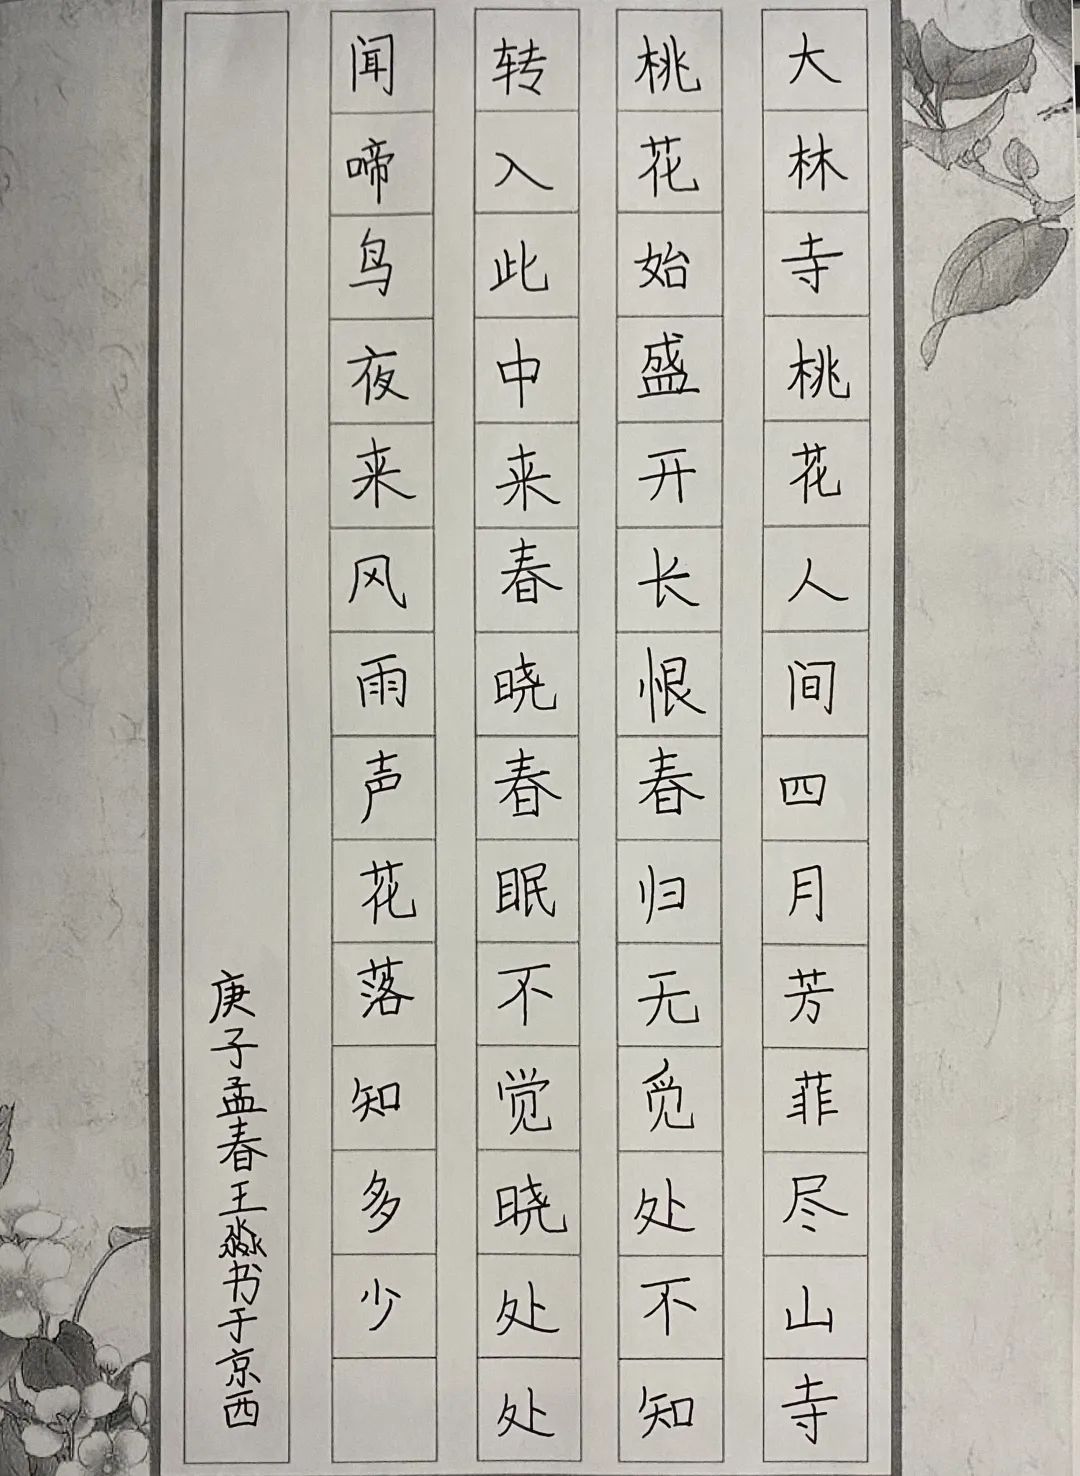 大林寺桃花人间四月芳菲尽山寺
桃花始盛开长恨春归无觅处不知
转入此中来春晓春眠不觉晓处处
闻啼鸟夜来风雨声花落知多少
庚子孟春王淼书于京西